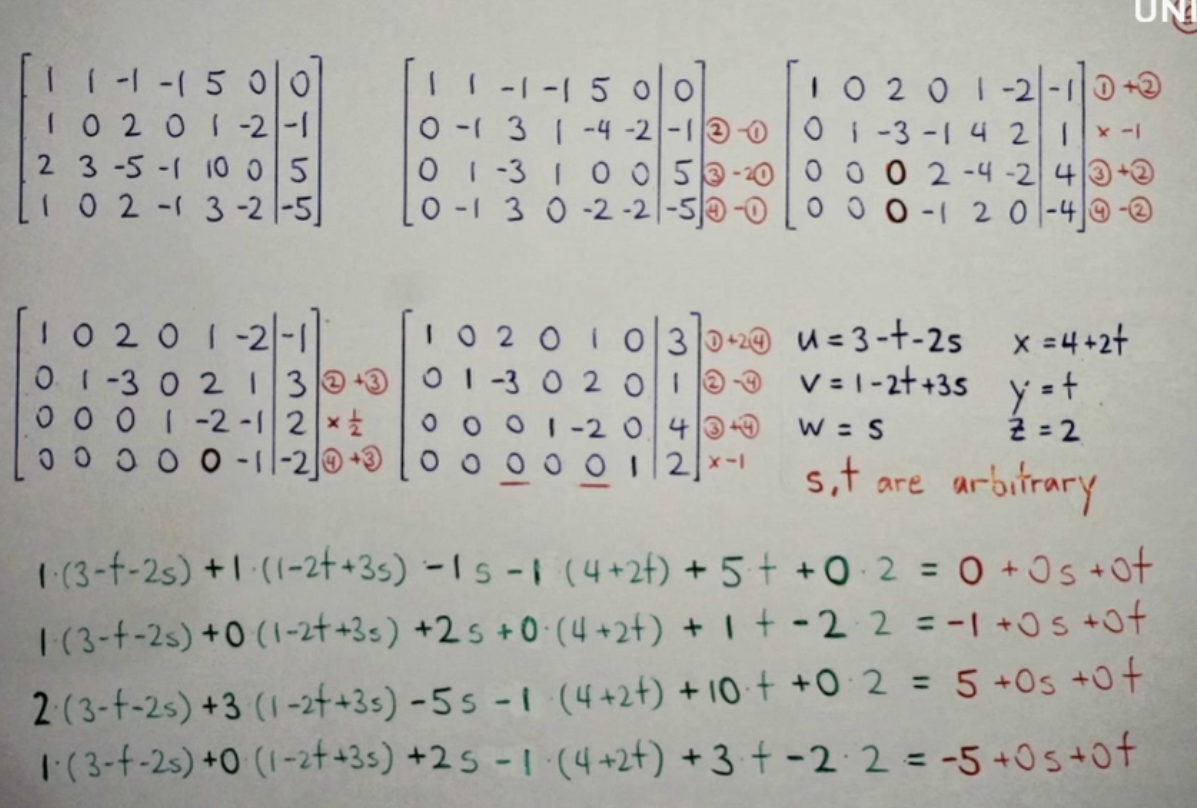 UNI
1 1 -1 -1 5 0 | 0
1 0 2 0 1 -2 | -1
2 3 -5 -1 10 0 | 5
1 0 2 -1 3 -2 | -5
1 1 -1 -1 5 0 | 0
0 -1 3 1 -4 -2 | -1 ② -①
0 1 -3 1 0 0 | 5 ③ -2①
0 -1 3 0 -2 -2 | -5 ④ -①
1 0 2 0 1 -2 | -1 ① +②
0 1 -3 -1 4 2 | 1 × -1
0 0 0 2 -4 -2 | 4 ③ +②
0 0 0 -1 2 0 | -4 ④ -②
1 0 2 0 1 -2 | -1
0 1 -3 0 2 1 | 3 ② +③
0 0 0 1 -2 -1 | 2 × 1/2
0 0 0 0 0 -1 | -2 ④ +③
1 0 2 0 1 0 | 3 ① +2④
0 1 -3 0 2 0 | 1 ② -④
0 0 0 1 -2 0 | 4 ③ +④
0 0 0 0 0 1 | 2 × -1
u = 3-t-2s x = 4+2t
v = 1-2t+3s y = t
w = s z = 2
s,t are arbitrary
1·(3-t-2s) +1·(1-2t+3s) -1s -1·(4+2t) + 5·t +0·2 = 0 +0s +0t
1·(3-t-2s) +0·(1-2t+3s) +2s +0·(4+2t) + 1 t -2·2 = -1 +0s +0t
2·(3-t-2s) +3·(1-2t+3s) -5s -1·(4+2t) +10·t +0·2 = 5 +0s +0t
1·(3-t-2s) +0·(1-2t+3s) +2s -1·(4+2t) +3·t -2·2 = -5 +0s +0t